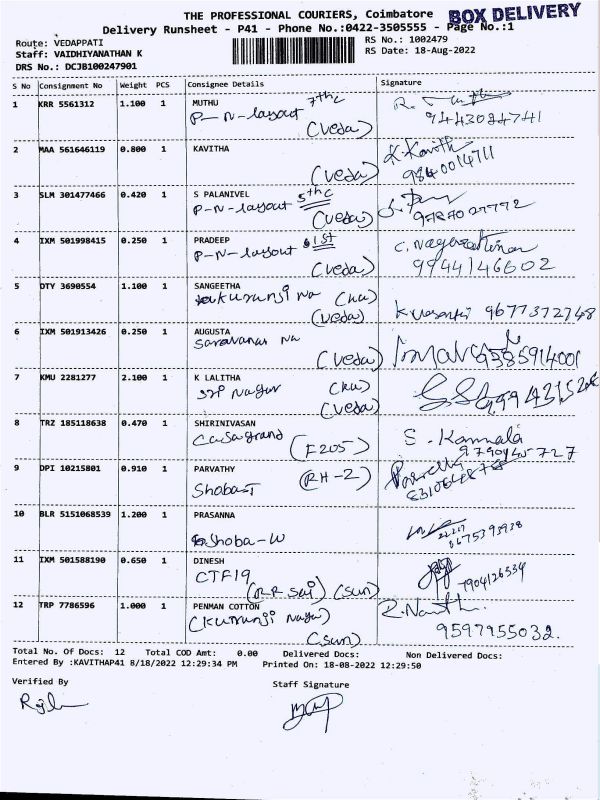 THE PROFESSIONAL COURIERS, Coimbatore BOX DELIVERY
Delivery Runsheet - P41 - Phone No.:0422-3505555 - Page No.:1
Route: VEDAPPATI RS No.: 1002479
Staff: VAIDHIYANATHAN K RS Date: 18-Aug-2022
DRS No.: DCJB100247901
S No Consignment No Weight PCS Consignee Details Signature
1 KRR 5561312 1.100 1 MUTHU
P-N-layout 7thc
(Veda) 9443084741
2 MAA 561646119 0.800 1 KAVITHA K.Kavitha
(Veda) 9840014711
3 SLM 301477466 0.420 1 S PALANIVEL
P-N-layout 5thc
(Veda) 9787027772
4 IXM 501998415 0.250 1 PRADEEP
P-N-layout 1st
(Veda) 9944146602
5 DTY 3690554 1.100 1 SANGEETHA
kurunji Na (ku)
(Veda) 9677372748
6 IXM 501913426 0.250 1 AUGUSTA
Saravanas Na
(Veda) 9585914001
7 KMU 2281277 2.100 1 K LALITHA
Sri Nagar (ku)
(Veda)
8 TRZ 185118638 0.470 1 SHIRINIVASAN
Casagrand S. Kamala
(F205) 9790145727
9 DPI 10215801 0.910 1 PARVATHY
Shoba-I (RH-2)
10 BLR 5151068539 1.200 1 PRASANNA
Shoba-W 8675393938
11 IXM 501588190 0.650 1 DINESH
CTF19 7904126534
(RR Sai) (Sun)
12 TRP 7786596 1.000 1 PENMAN COTTON
(Kurunji Nagar)
(Sun) 9597955032.
Total No. Of Docs: 12 Total COD Amt: 0.00 Delivered Docs: Non Delivered Docs:
Entered By :KAVITHAP41 8/18/2022 12:29:34 PM Printed On: 18-08-2022 12:29:50
Verified By Staff Signature